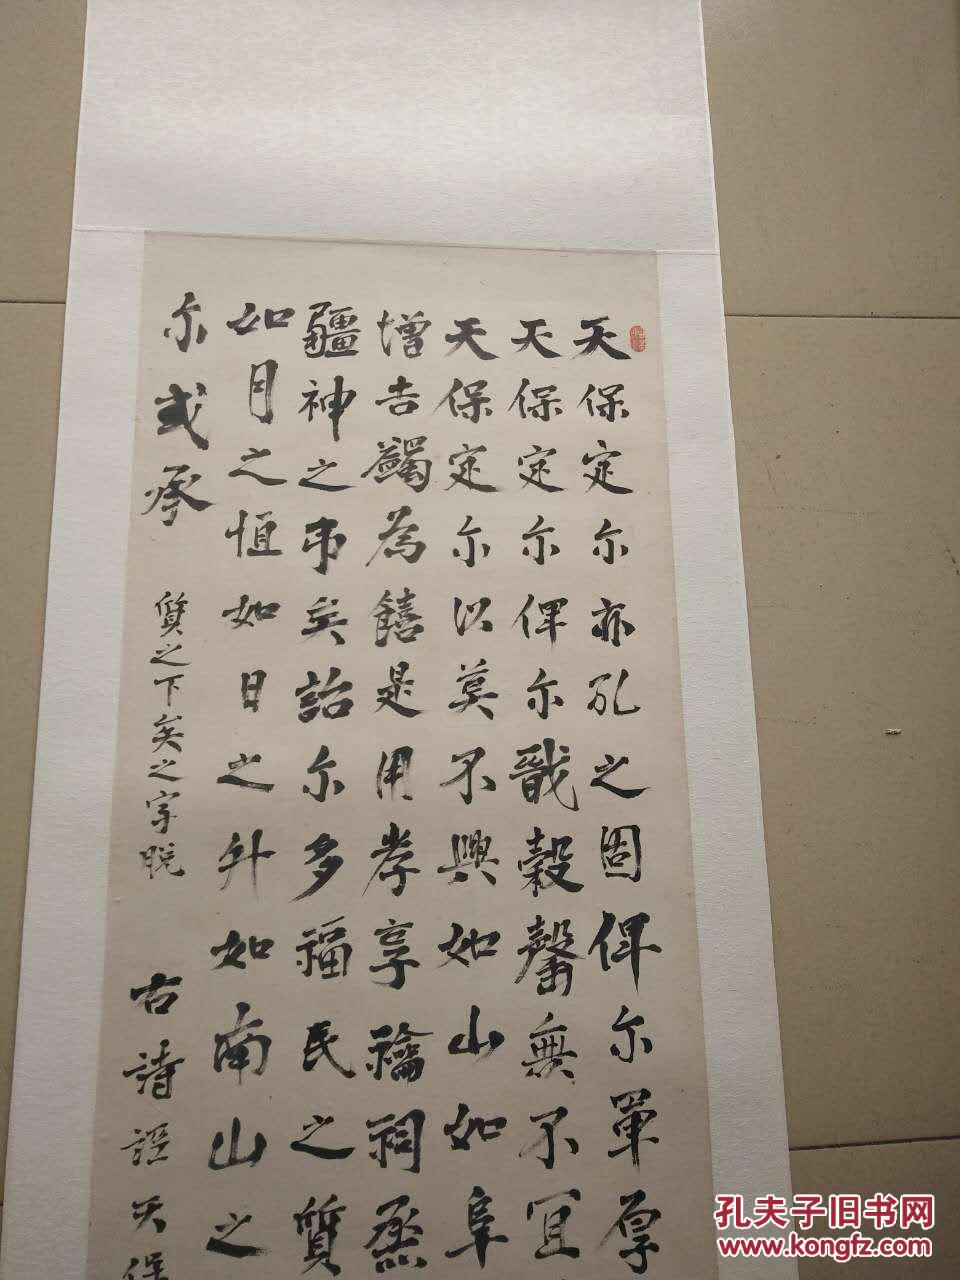 天保定尔亦孔之固俾尔單厚
天保定尔俾尔戩穀罄無不宜
天保定尔以莫不興如山如阜
增吉蠲為饎是用孝享禴祠烝
疆神之弔矣詒尔多福民之質
如月之恒如日之升如南山之
尔或承
質之下矣之字脫
古詩經天保
孔夫子旧书网
www.kongfz.com